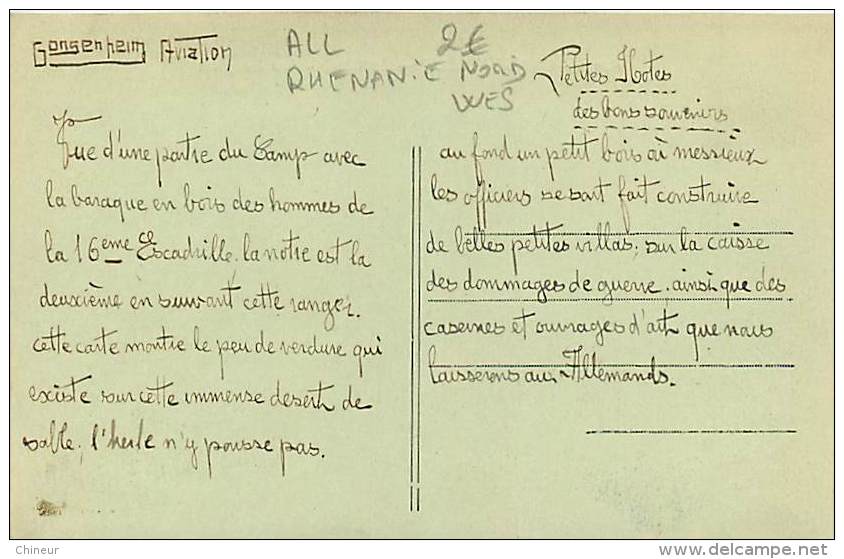 Gonsenheim Aviation
ALL 2€
RHENANIE NORD
VUES
Petites Notes
des bons souvenirs
Vue d'une partie du Camp avec
la baraque en bois des hommes de
la 16eme Escadrille. la notre est la
deuxième en suivant cette ranger.
cette carte montre le peu de verdure qui
existe sur cette immense desert de
sable, l'herbe n'y pousse pas.
au fond un petit bois où messieux
les officiers se sont fait construire
de belles petites villas, sur la caisse
des dommages de guerre, ainsi que des
casernes et ouvrages d'art que nous
laisserons aux Allemands.
Chineur
www.delcampe.net